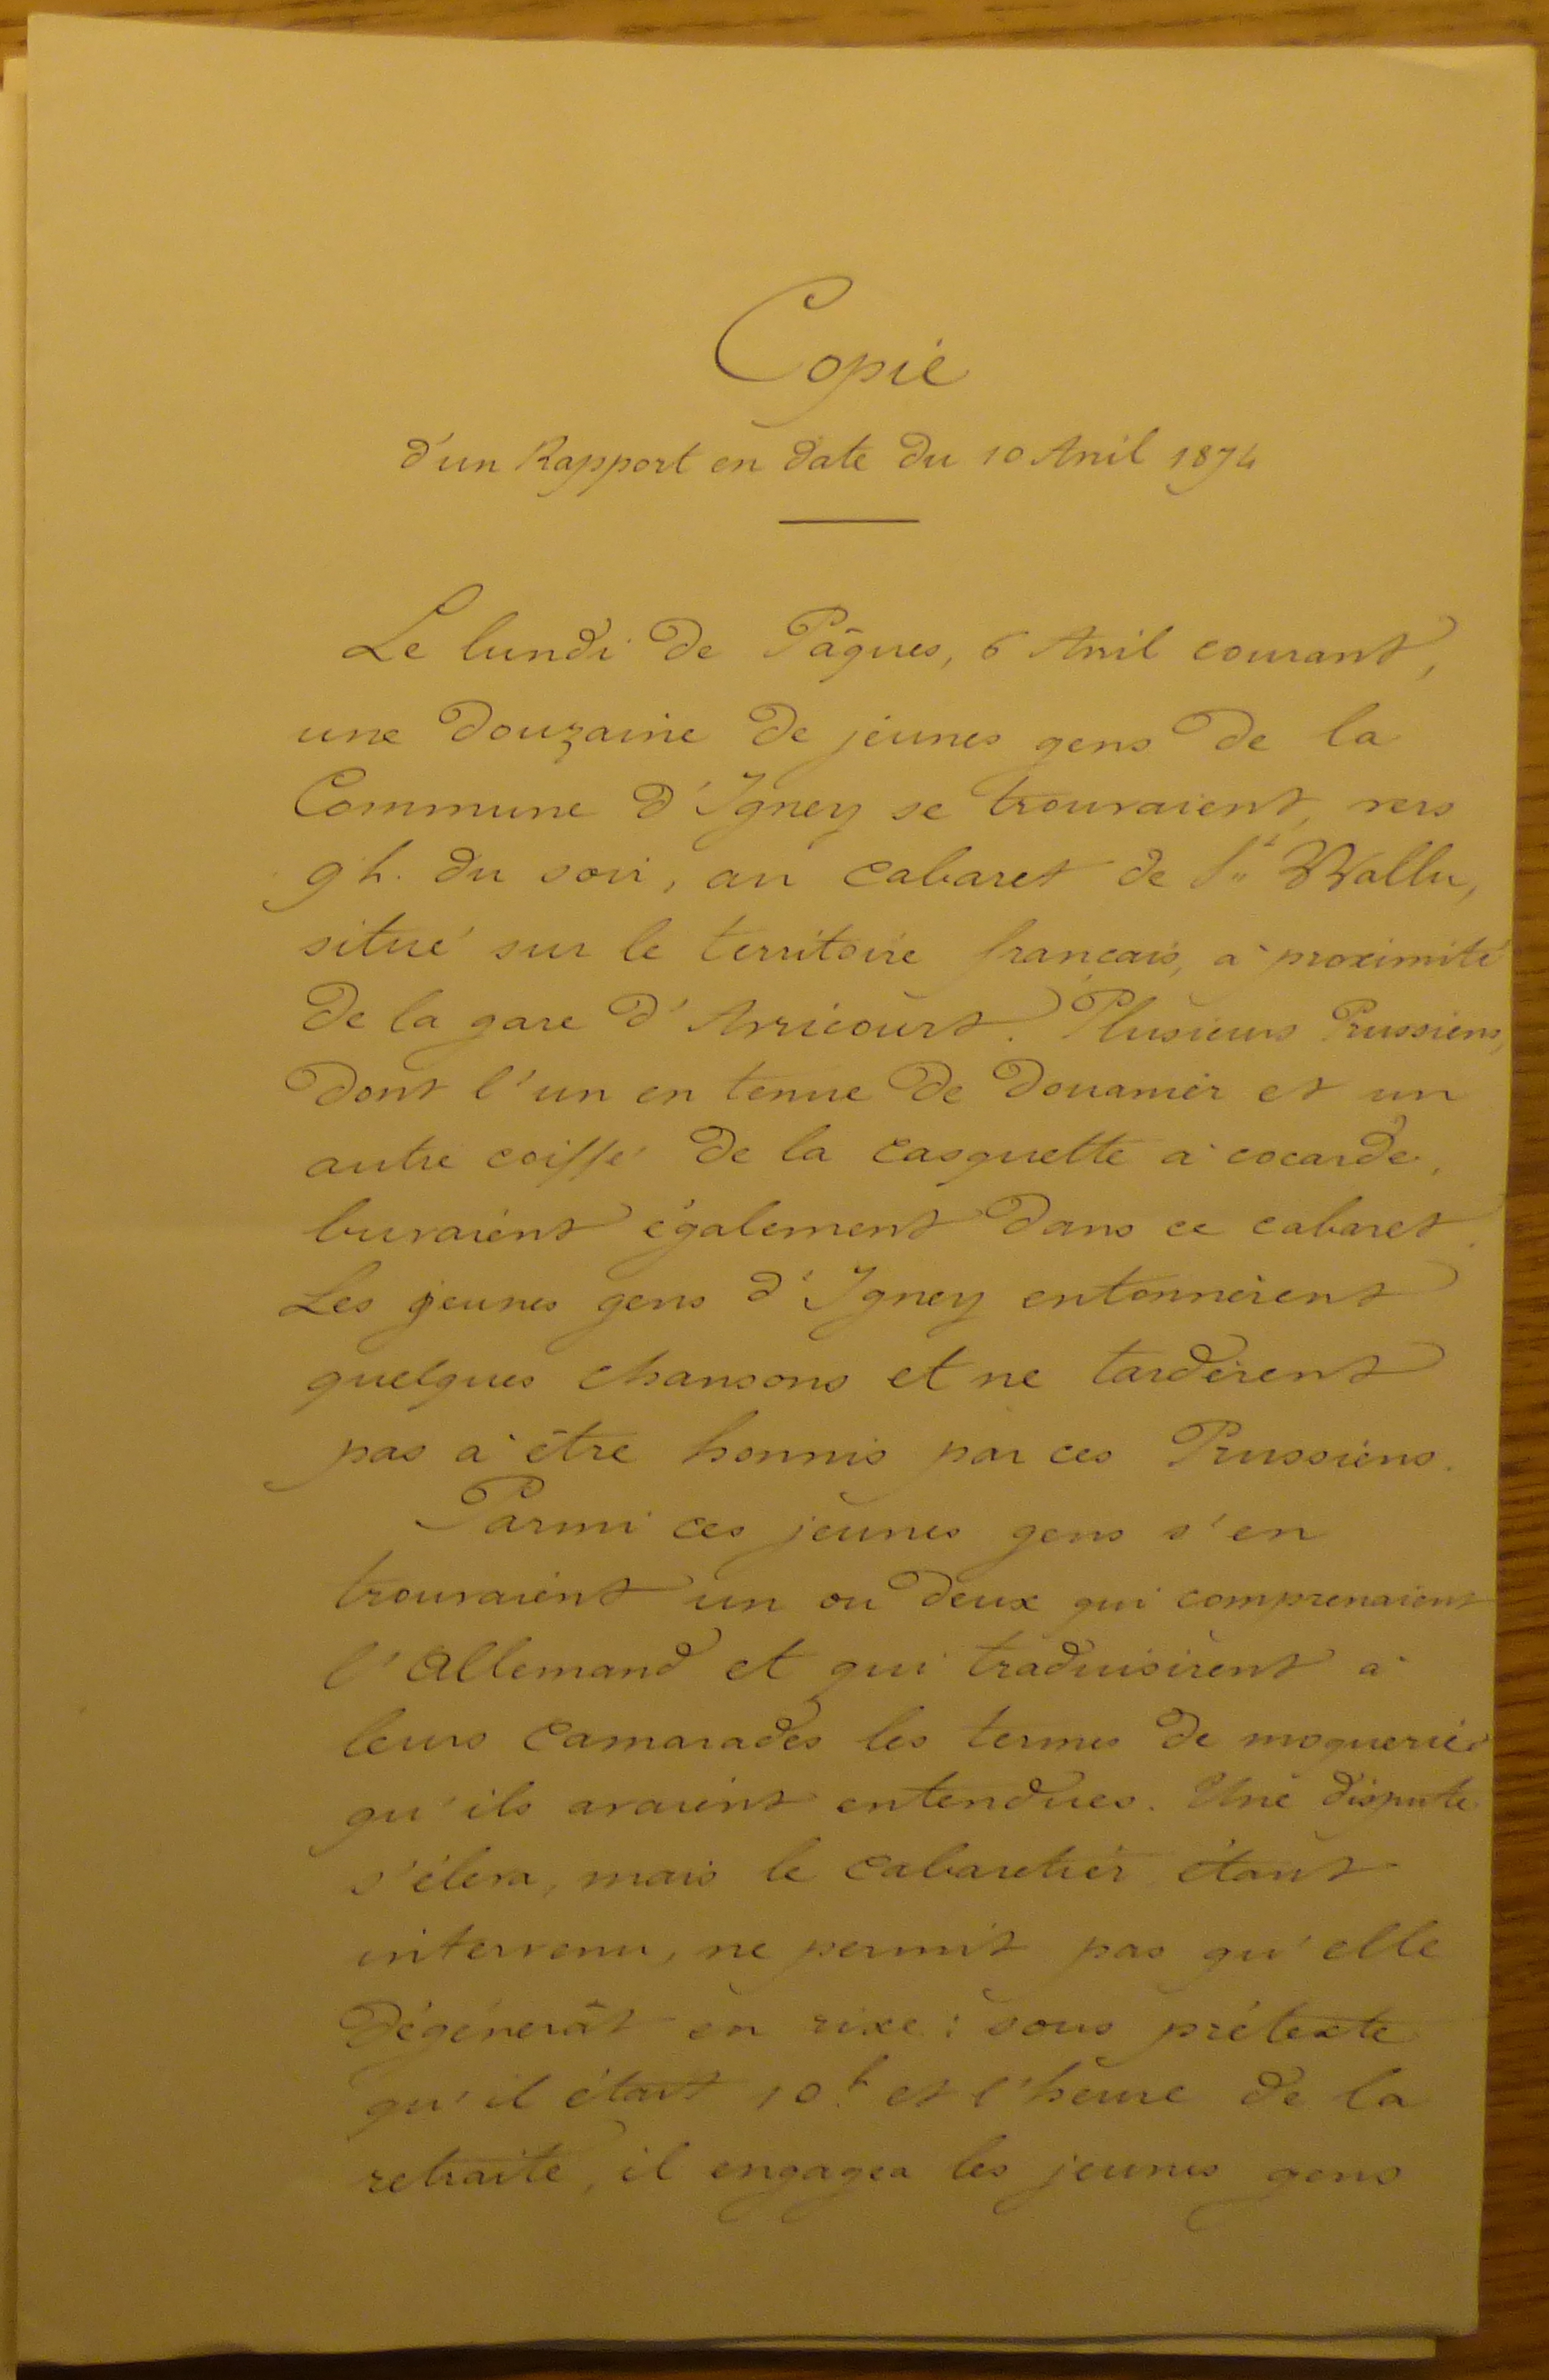 Copie
d'un Rapport en date du 10 Avril 1874
Le lundi de Pâques, 6 Avril courant,
une douzaine de jeunes gens de la
Commune d'Igney se trouvaient, vers
9 h. du soir, au cabaret de Wallu,
situé sur le territoire français, à proximité
de la gare d'Avricourt. Plusieurs Prussiens,
dont l'un en tenue de douanier et un
autre coiffé de la casquette à cocarde,
buvaient également dans ce cabaret.
Les jeunes gens d'Igney entonnèrent
quelques chansons et ne tardèrent
pas à être honnis par ces Prussiens.
Parmi ces jeunes gens s'en
trouvaient un ou deux qui comprenaient
l'Allemand et qui traduisirent à
leurs camarades les termes de moqueries
qu'ils avaient entendues. Une dispute
s'éleva, mais le cabaretier étant
intervenu, ne permit pas qu'elle
dégénerât en rixe : sous prétexte
qu'il était 10 h. et l'heure de la
retraite, il engagea les jeunes gens